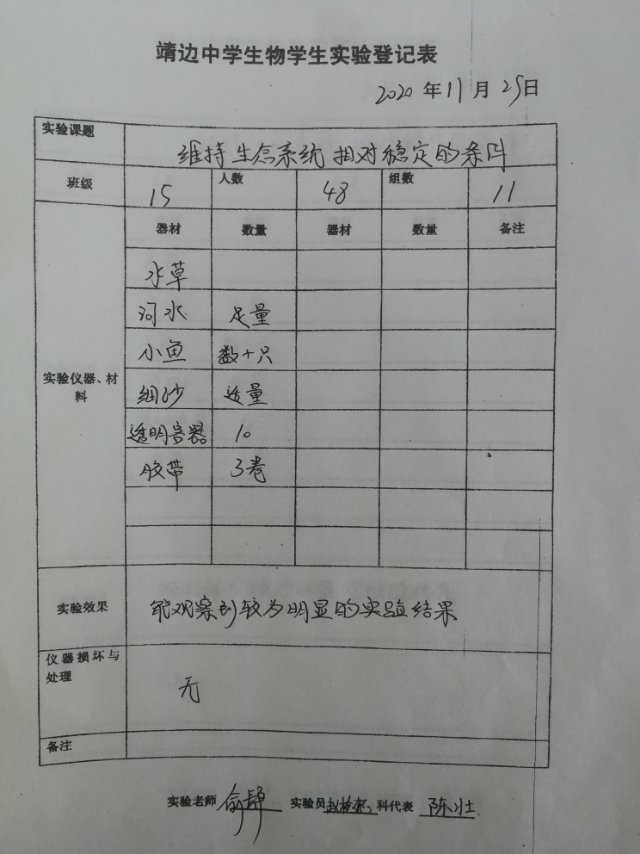 靖边中学生物学生实验登记表
2020 年 11 月 25 日
实验课题 维持生态系统相对稳定的条件
班级 15 人数 48 组数 11
实验仪器、材料 器材 数量 器材 数量 备注
水草
河水 足量
小鱼 数十只
细沙 适量
透明容器 10
胶带 3卷
实验效果 能观察到较为明显的实验结果
仪器损坏与处理 无
备注
实验老师 实验员 科代表 陈壮